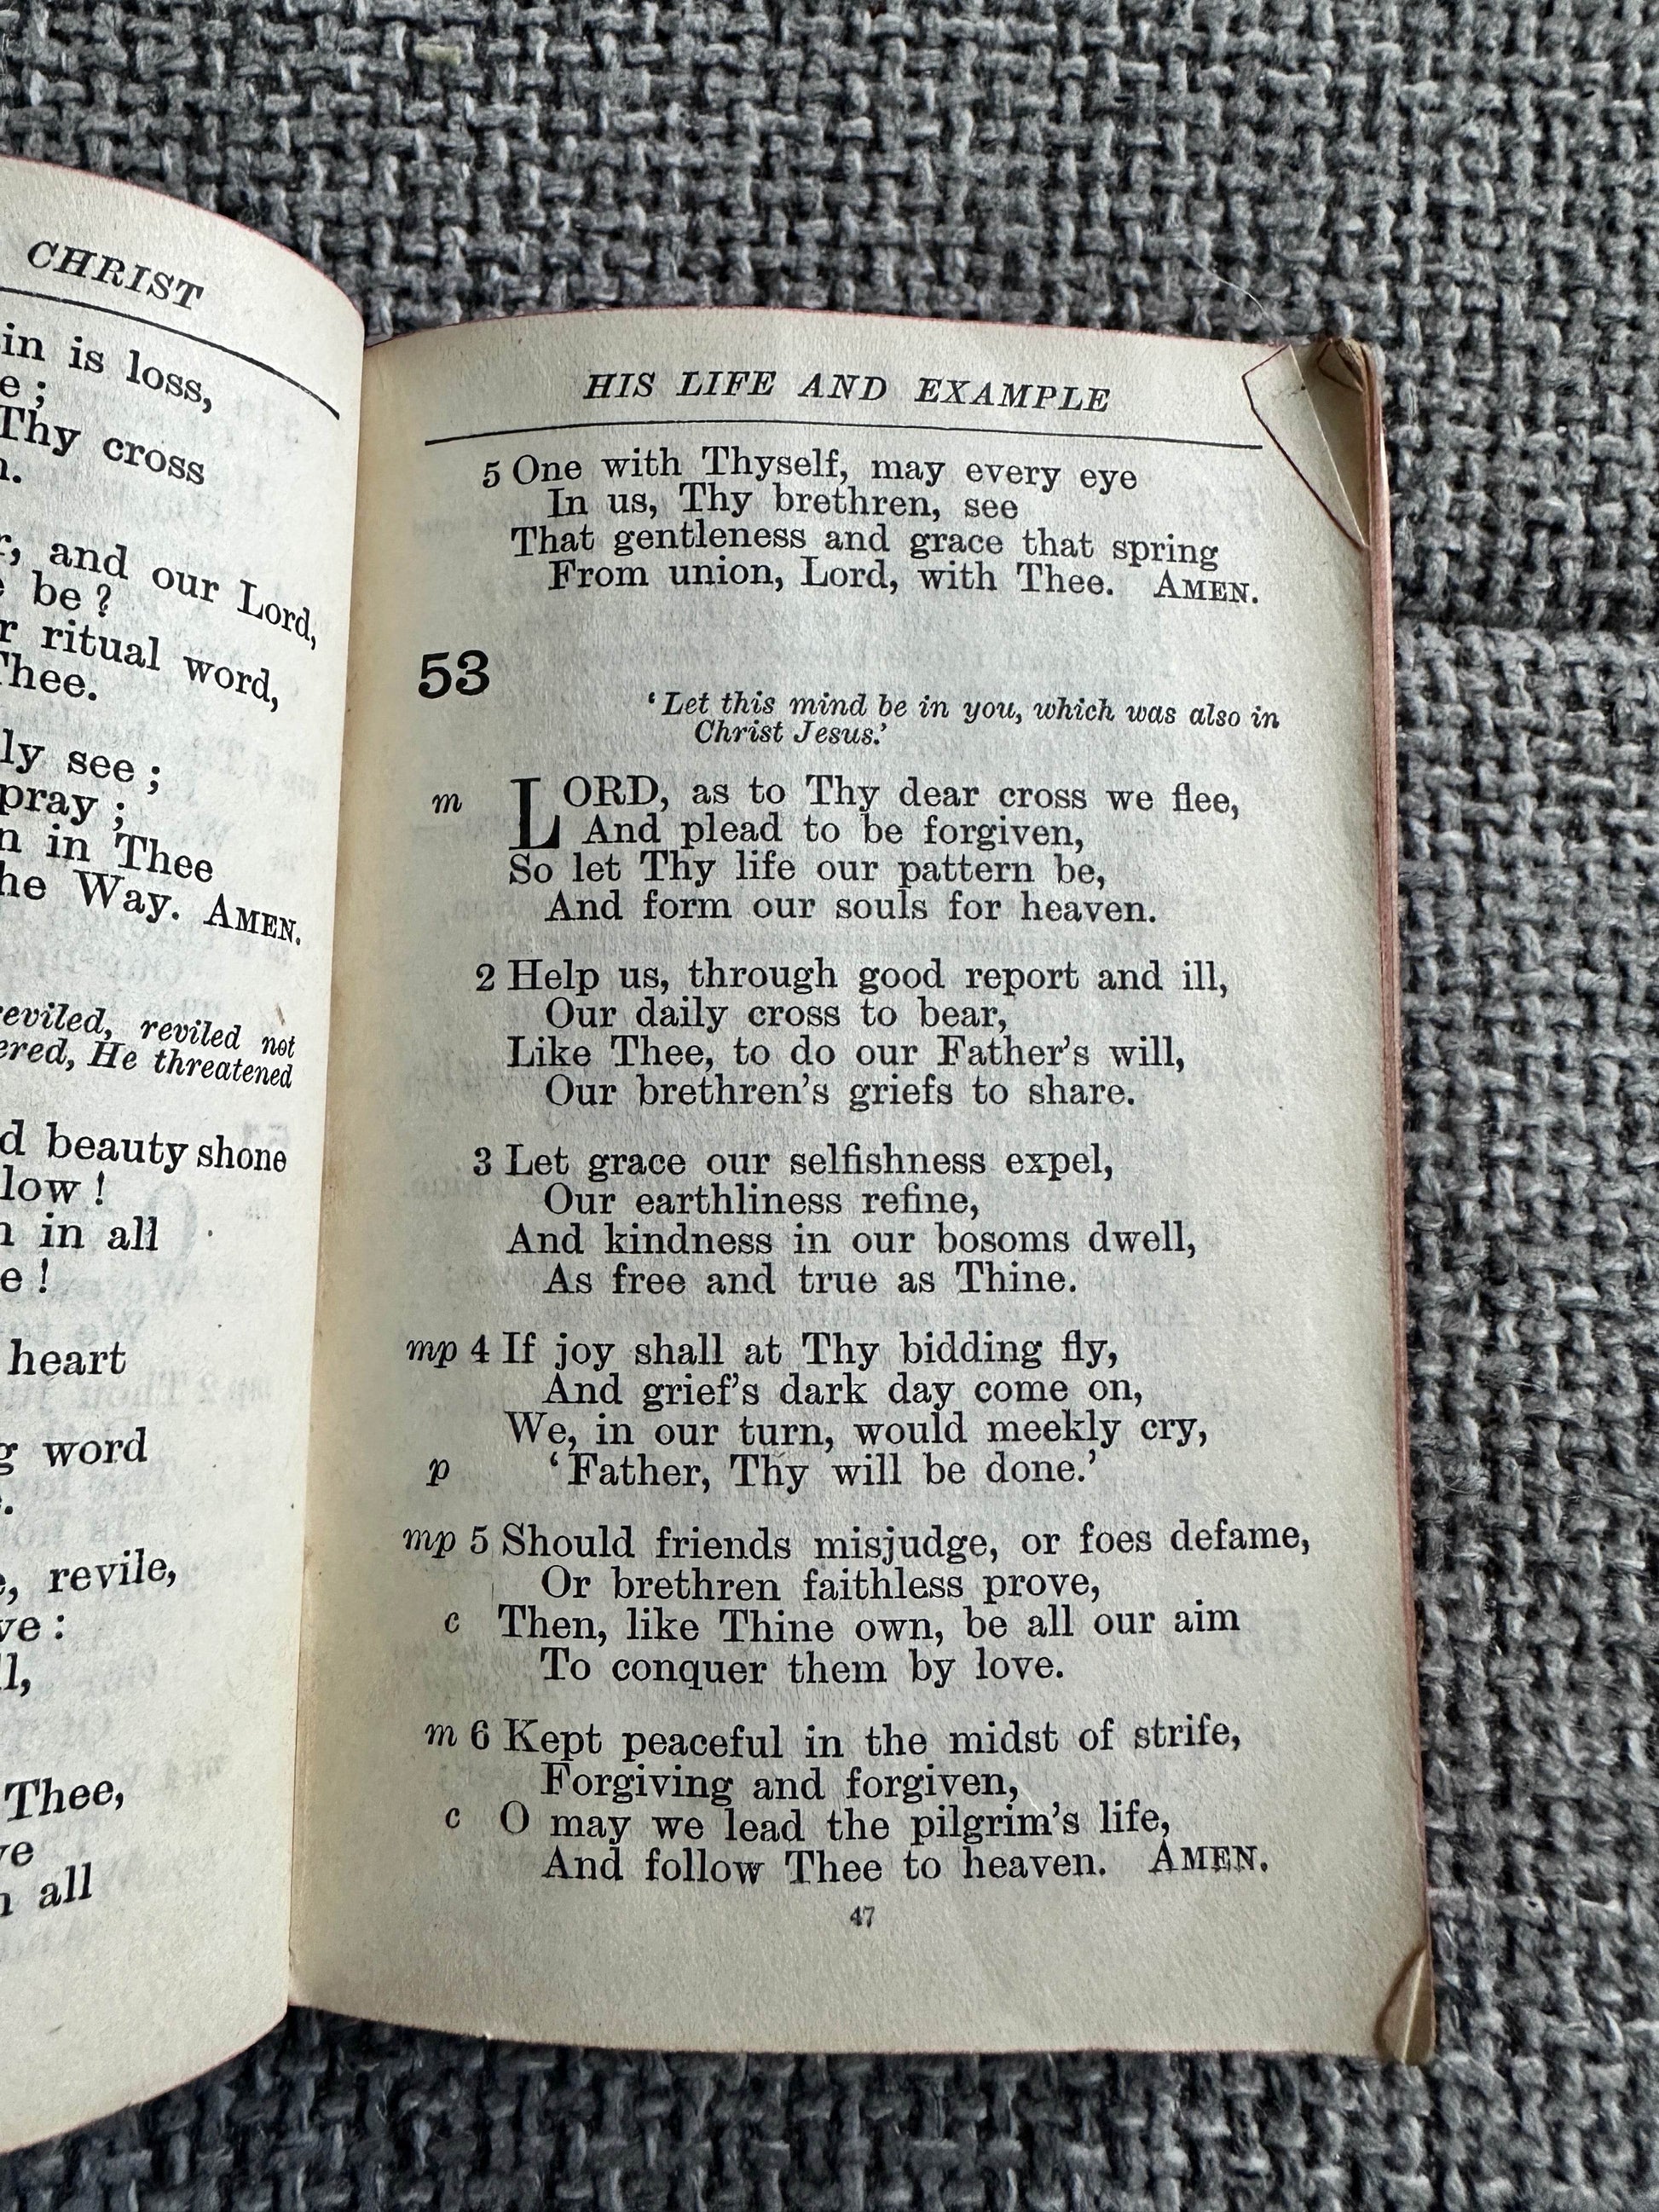 CHRIST
in is loss,
e ;
Thy cross
n.
r, and our Lord,
e be ?
r ritual word,
Thee.
ly see ;
pray ;
n in Thee
he Way. AMEN.
eviled, reviled not
ered, He threatened
d beauty shone
low !
n in all
e !
heart
g word
e.
e, revile,
ve :
ll,
Thee,
ve
n all
HIS LIFE AND EXAMPLE
5 One with Thyself, may every eye
In us, Thy brethren, see
That gentleness and grace that spring
From union, Lord, with Thee. AMEN.
53
‘Let this mind be in you, which was also in
Christ Jesus.’
m LORD, as to Thy dear cross we flee,
And plead to be forgiven,
So let Thy life our pattern be,
And form our souls for heaven.
2 Help us, through good report and ill,
Our daily cross to bear,
Like Thee, to do our Father’s will,
Our brethren’s griefs to share.
3 Let grace our selfishness expel,
Our earthliness refine,
And kindness in our bosoms dwell,
As free and true as Thine.
mp 4 If joy shall at Thy bidding fly,
And grief’s dark day come on,
We, in our turn, would meekly cry,
p ‘Father, Thy will be done.’
mp 5 Should friends misjudge, or foes defame,
Or brethren faithless prove,
c Then, like Thine own, be all our aim
To conquer them by love.
m 6 Kept peaceful in the midst of strife,
Forgiving and forgiven,
c O may we lead the pilgrim’s life,
And follow Thee to heaven. AMEN.
47